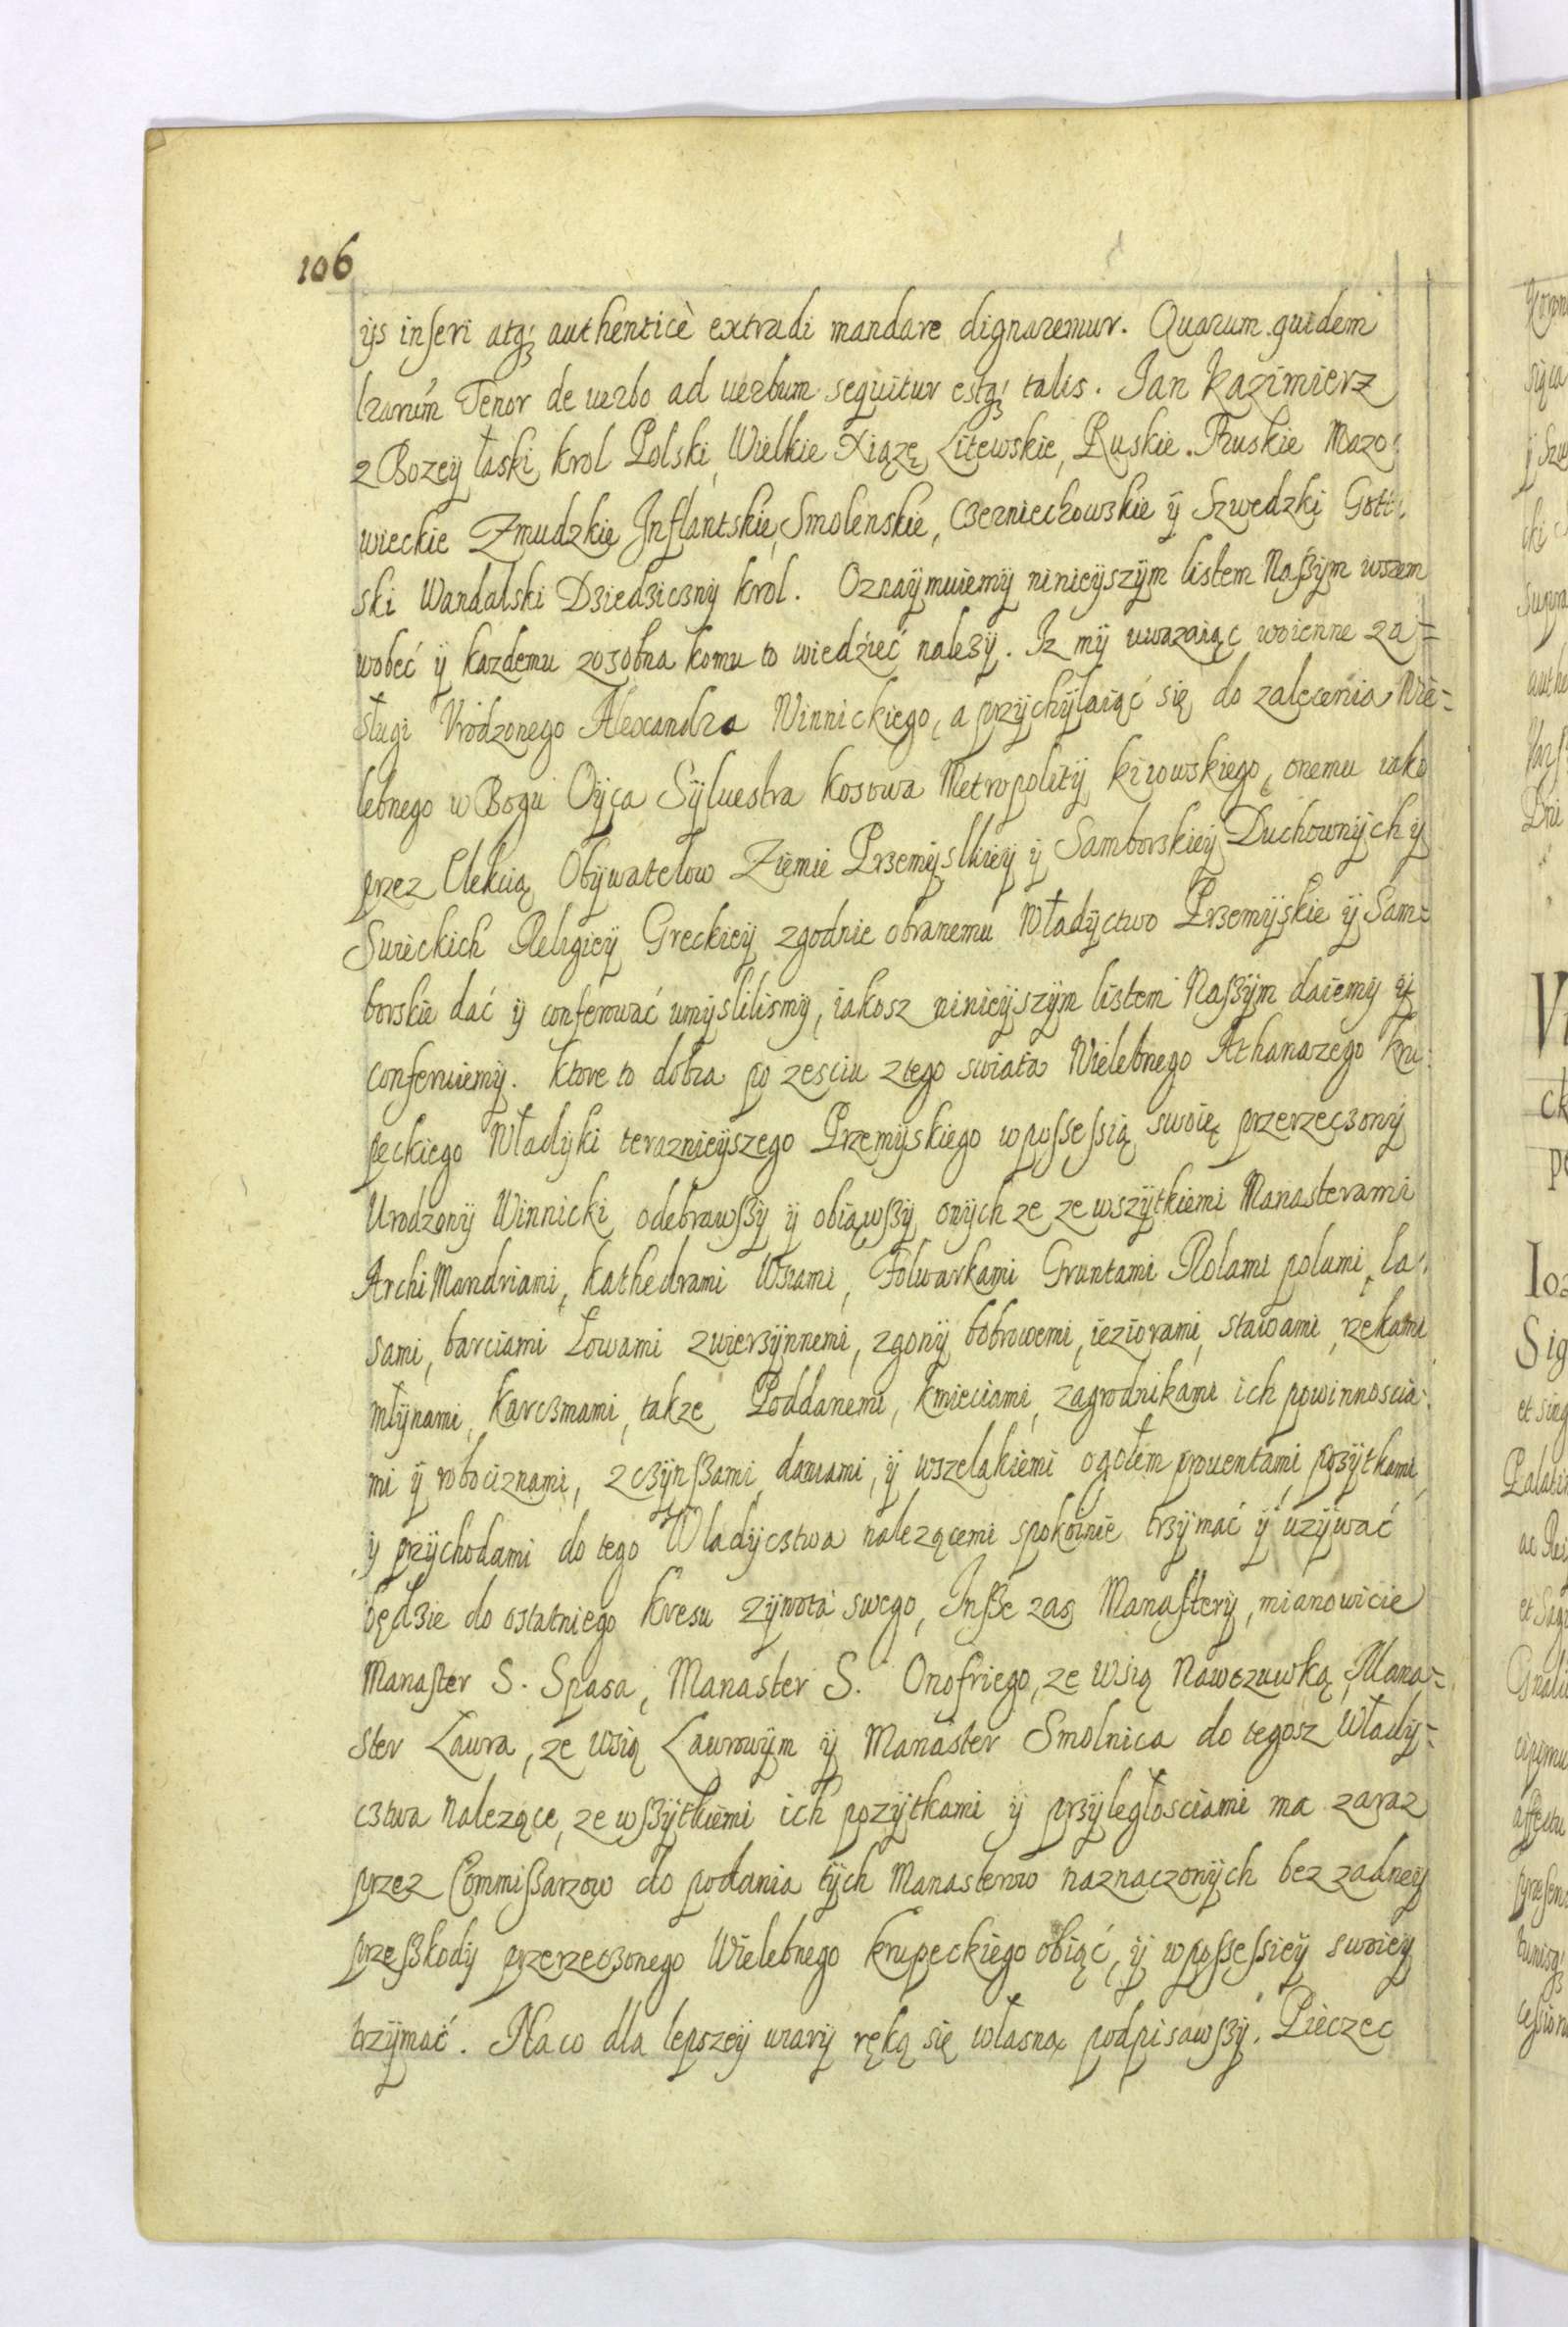 106
ijs inseri atq3 authenticè extradi mandare dignaremur. Quarum quidem
lrarum Tenor de uerbo ad uerbum sequitur estq3 talis. Jan Kazimierz
z Bozey łaski krol Polski, Wielkie Xiązę Litewskie, Ruskie. Pruskie Mazo:
wieckie Zmudzkie Inflantskie, Smolenskie, Czerniechowskie ÿ Szwedzki Gott:
ski Wandalski Dziedziczny krol. Oznaÿmuiemÿ ninieÿszÿm listem Naszÿm wszem
wobeć ÿ kazdemu zosobna komu to wiedźieć nalezÿ. Iz mÿ uwazaiąc woienne za=
sługi Vrodzonego Alexandra Winnickiego, a przÿchÿlaiąć się do zalecenia Wie=
lebnego w Bogu Oÿca Sÿluestra Kosowa Metropolitÿ kiiowskiego, onemu iako
przez Elekcią Obÿwatelow Ziemie Przemÿslkieÿ ÿ Samborskieÿ Duchownÿch ÿ
Swieckich Religieÿ Greckieÿ zgodnie obranemu Władÿctwo Przemÿskie ÿ Sam=
borskie dać ÿ conferować umÿslilismÿ, iakosz ninieÿszÿm listem Naszÿm daiemÿ ÿ
conferuiemÿ. Ktore to dobra po zesciu ztego swiata Wielebnego Athanazego Kru:
peckiego Władÿki teraznieÿszego Przemÿskiego w possessią swoię przerzeczonÿ
Urodzonÿ Winnicki odebrawszÿ ÿ obiąwszÿ onÿch ze ze wszÿtkiemi Manasterami
ArchiMandriami, Kathedrami Wsiami, Folwarkami Gruntami Rolami polami, la:
sami, barciami Łowami zwierzÿnnemi, zgonÿ bobrowemi, ieziorami, stawami, rzekami
młÿnami, Karczmami, takze Poddanemi, kmieciami, zagrodnikami ich powinnoscia:
mi ÿ robociznami, z czÿnszami, daniami, ÿ wszelakiemi ogołem prouentami, pozÿtkami,
ÿ przÿchodami do tego Władÿcztwa nalezącemi spokoinie trzÿmać ÿ uzÿwać
będzie do ostatniego kresu zÿwota swego, Insze zas Manasterÿ, mianowicie
Manaster S. Spasa, Manaster S. Onofriego, ze wsią Nawczuwką, Mana=
ster Ławra, ze wsią Lawrowÿm ÿ Manaster Smolnica do tegosz Władÿ=
cztwa nalezące, ze wszÿtkiemi ich pozÿtkami ÿ przÿległosciami ma zaraz
przez Commissarzow do podania tÿch Manasterow naznaczonÿch bez zadneÿ
przeszkodÿ przerzeczonego Wielebnego krupeckiego obiąć, ÿ w possessieÿ swoieÿ
trzÿmać. Na co dla lepszeÿ wiarÿ ręką się własną podpisawszÿ. Pieczec